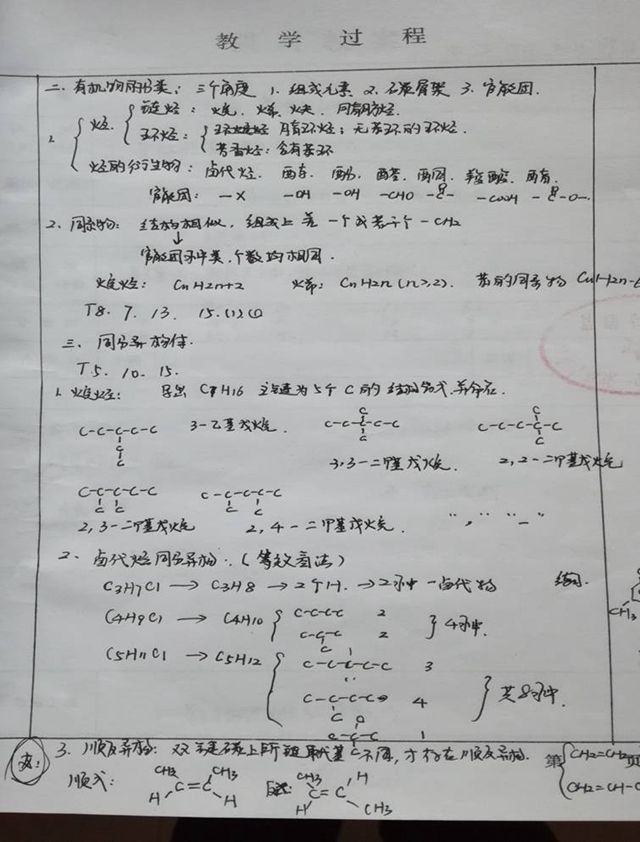 教学过程
二. 有机物的分类: 三个角度 1. 组成元素 2. 碳骨架 3. 官能团.
1. 烃 链烃: 烷. 烯. 炔. 脂肪烃.
环烃: 脂环烃; 无苯环的环烃.
芳香烃: 含有苯环
烃的衍生物: 卤代烃. 醇. 酚. 醛. 酮. 羧酸. 酯.
官能团: —X —OH —OH —CHO —C— —COOH —C—O—.
2. 同系物: 结构相似, 组成上差一个或若干个 —CH2
官能团种类. 个数均相同.
烷烃: CnH2n+2 烯: CnH2n (n≥2). 苯的同系物 CnH2n-6
T8. 7. 13. 15.(1)(2)
三. 同分异构体.
T5. 10. 15.
1. 烷烃: 写出 C7H16 主链为5个C的结构简式. 并命名.
C-C-C-C-C 3-乙基戊烷. C-C-C-C-C C-C-C-C-C
3,3-二甲基戊烷. 2,2-二甲基戊烷
C-C-C-C-C C-C-C-C-C
2,3-二甲基戊烷 2,4-二甲基戊烷. "," "-"
2. 卤代烃同分异构. (等效氢法)
C3H7Cl → C3H8 → 2个H. → 2种一卤代物
C4H9Cl → C4H10 C-C-C-C 2
C-C-C 2 4种.
C5H11Cl → C5H12 C-C-C-C-C 3
C-C-C-C 4 共8种.
C-C-C 1
3. 顺反异构: 双键碳上所连取代基不同, 才存在顺反异构. 第 页
顺式: CH3 CH3 C=C H H 反式: CH3 H C=C H CH3
CH2=CH2
CH2=CH-C
CH3